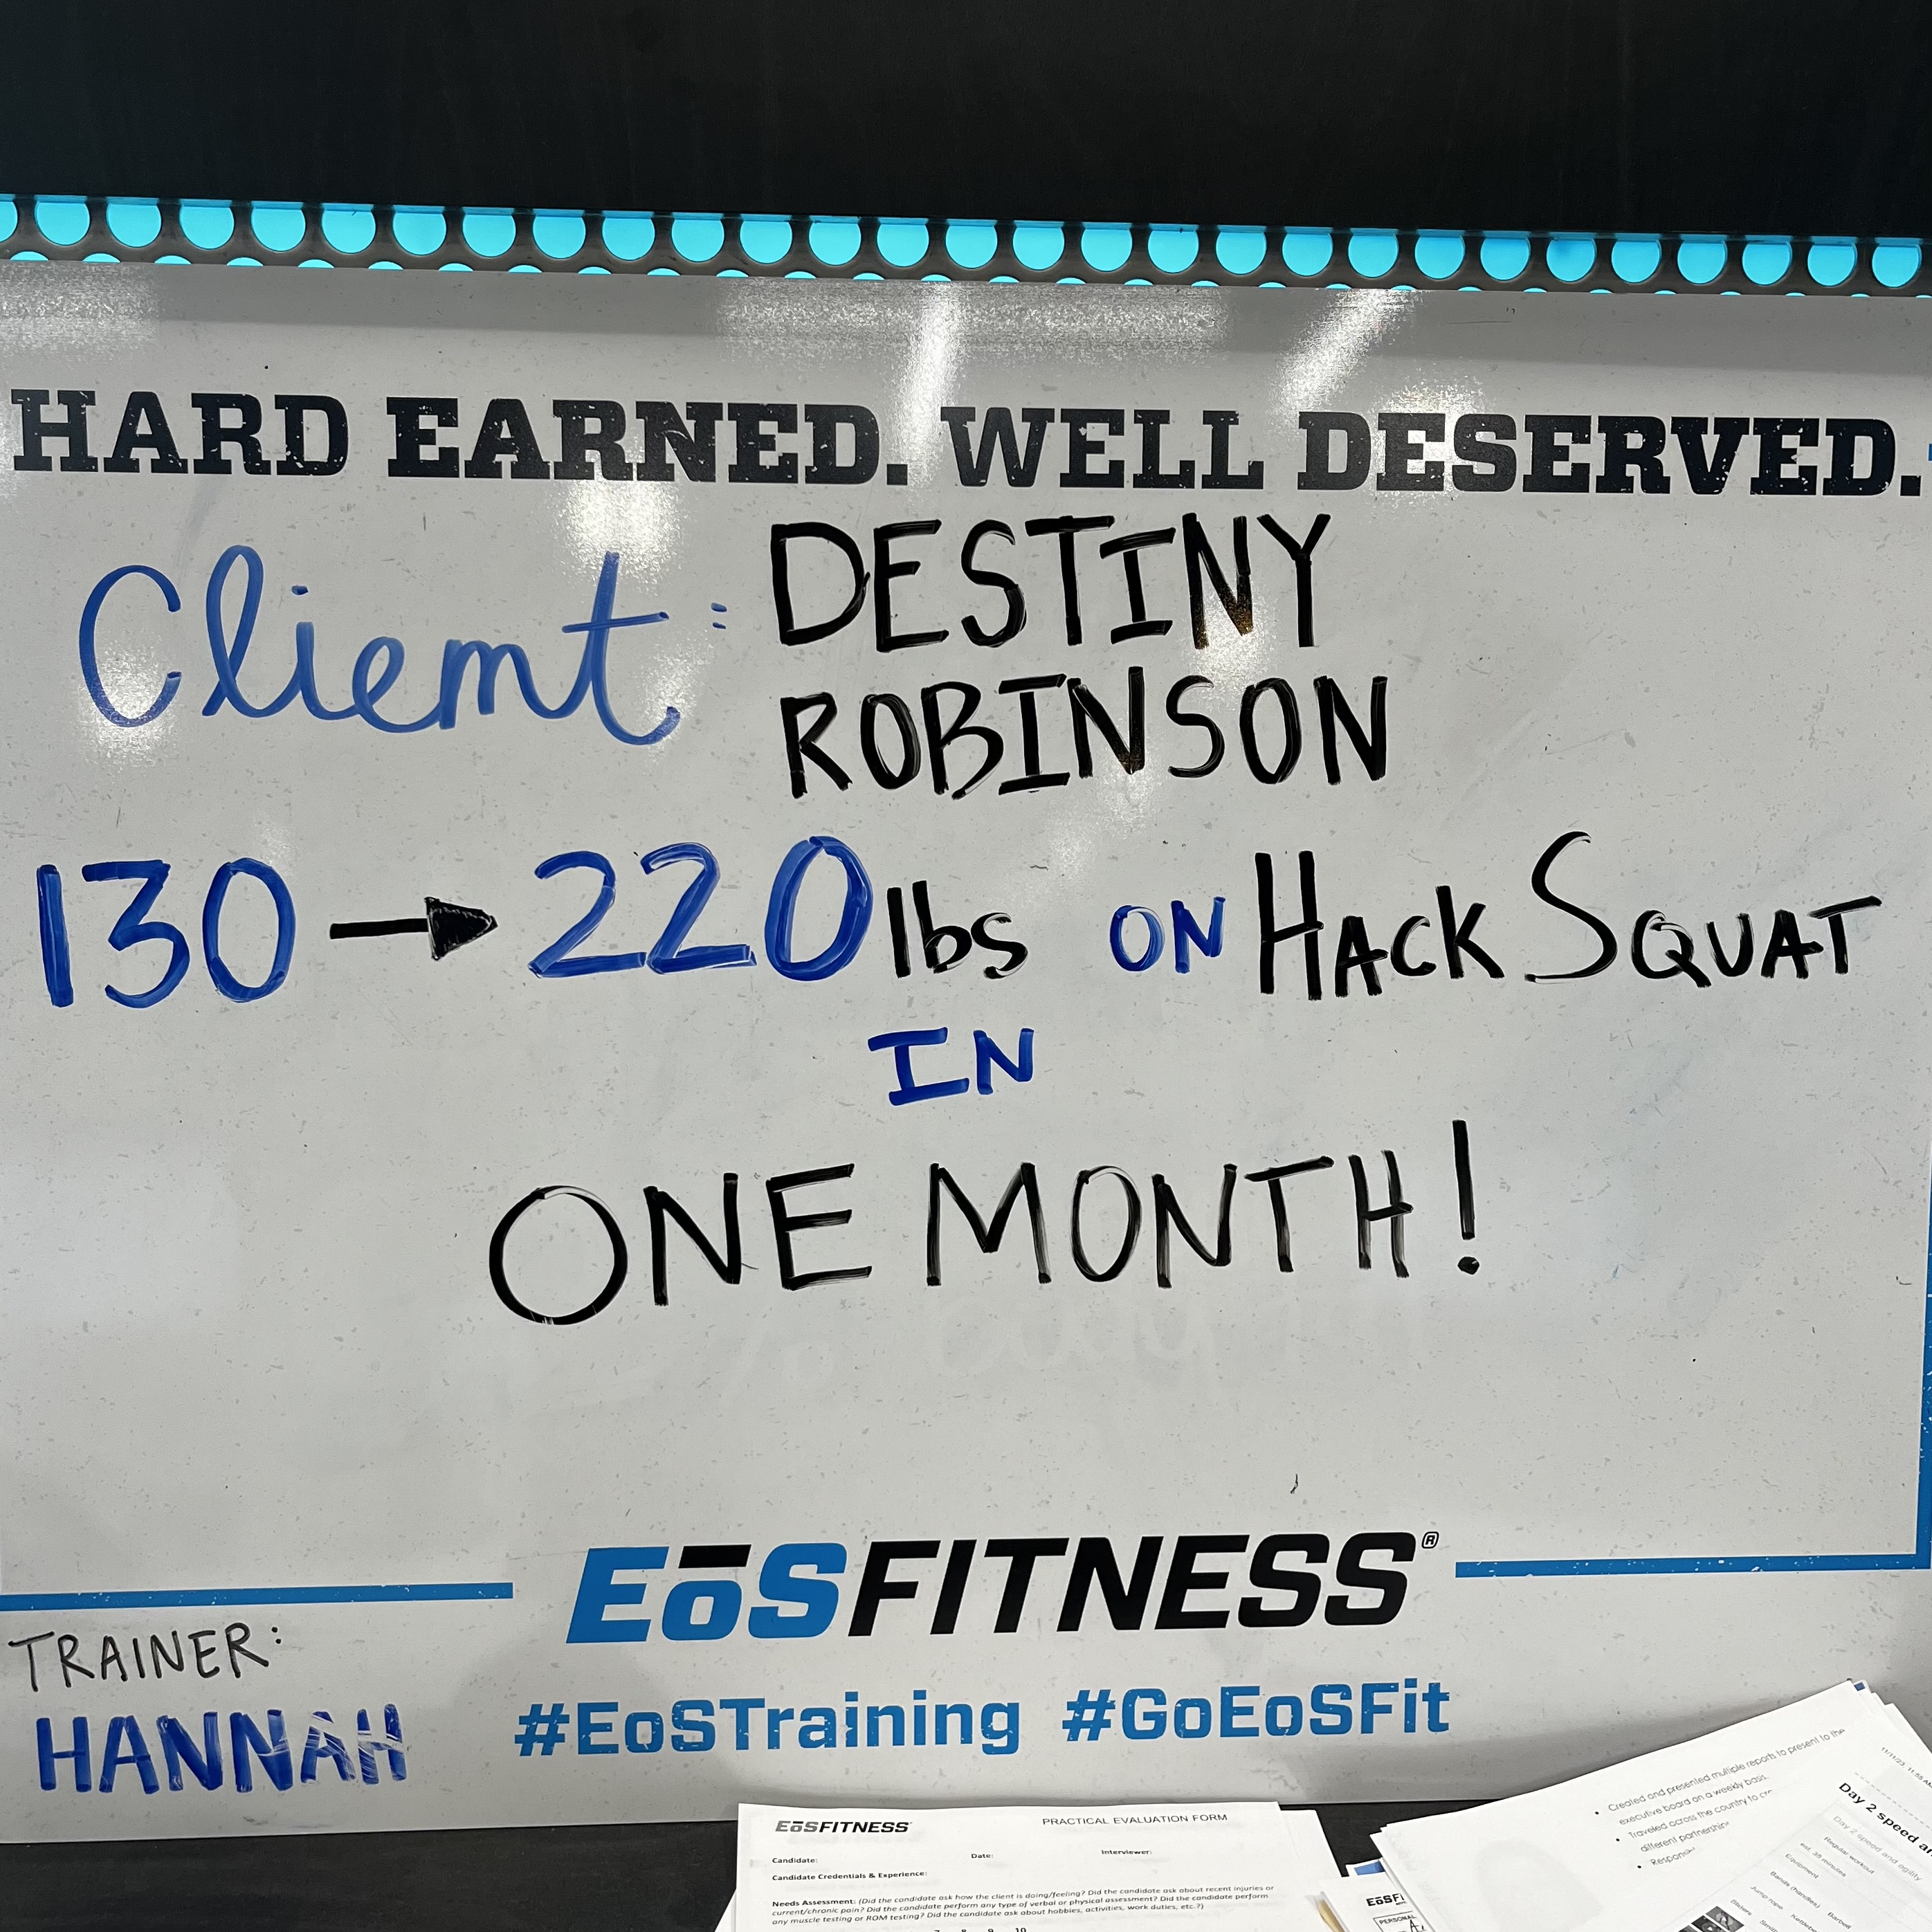 HARD EARNED. WELL DESERVED.
Client: DESTINY
ROBINSON
130 → 220 lbs ON HACK SQUAT
IN
ONE MONTH!
EōSFITNESS®
TRAINER:
HANNAH
#EoSTraining #GoEoSFit
EōSFITNESS PRACTICAL EVALUATION FORM
Candidate: Date: Interviewer:
Candidate Credentials & Experience:
Needs Assessment: (Did the candidate ask how the client is doing/feeling? Did the candidate ask about recent injuries or
current/chronic pain? Did the candidate perform any type of verbal or physical assessment? Did the candidate perform
any muscle testing or ROM testing? Did the candidate ask about hobbies, activities, work duties, etc.?)
7 8 9 10
EōSFI
PERSONAL
• Created and presented multiple reports to present to the
executive board on a weekly basis.
• Traveled across the country to
different
11/11/23
Day 2 speed
Day 2 speed and agility
Regular workout
est. 35 minutes
Equipment
Bands (handles)
Jump rope